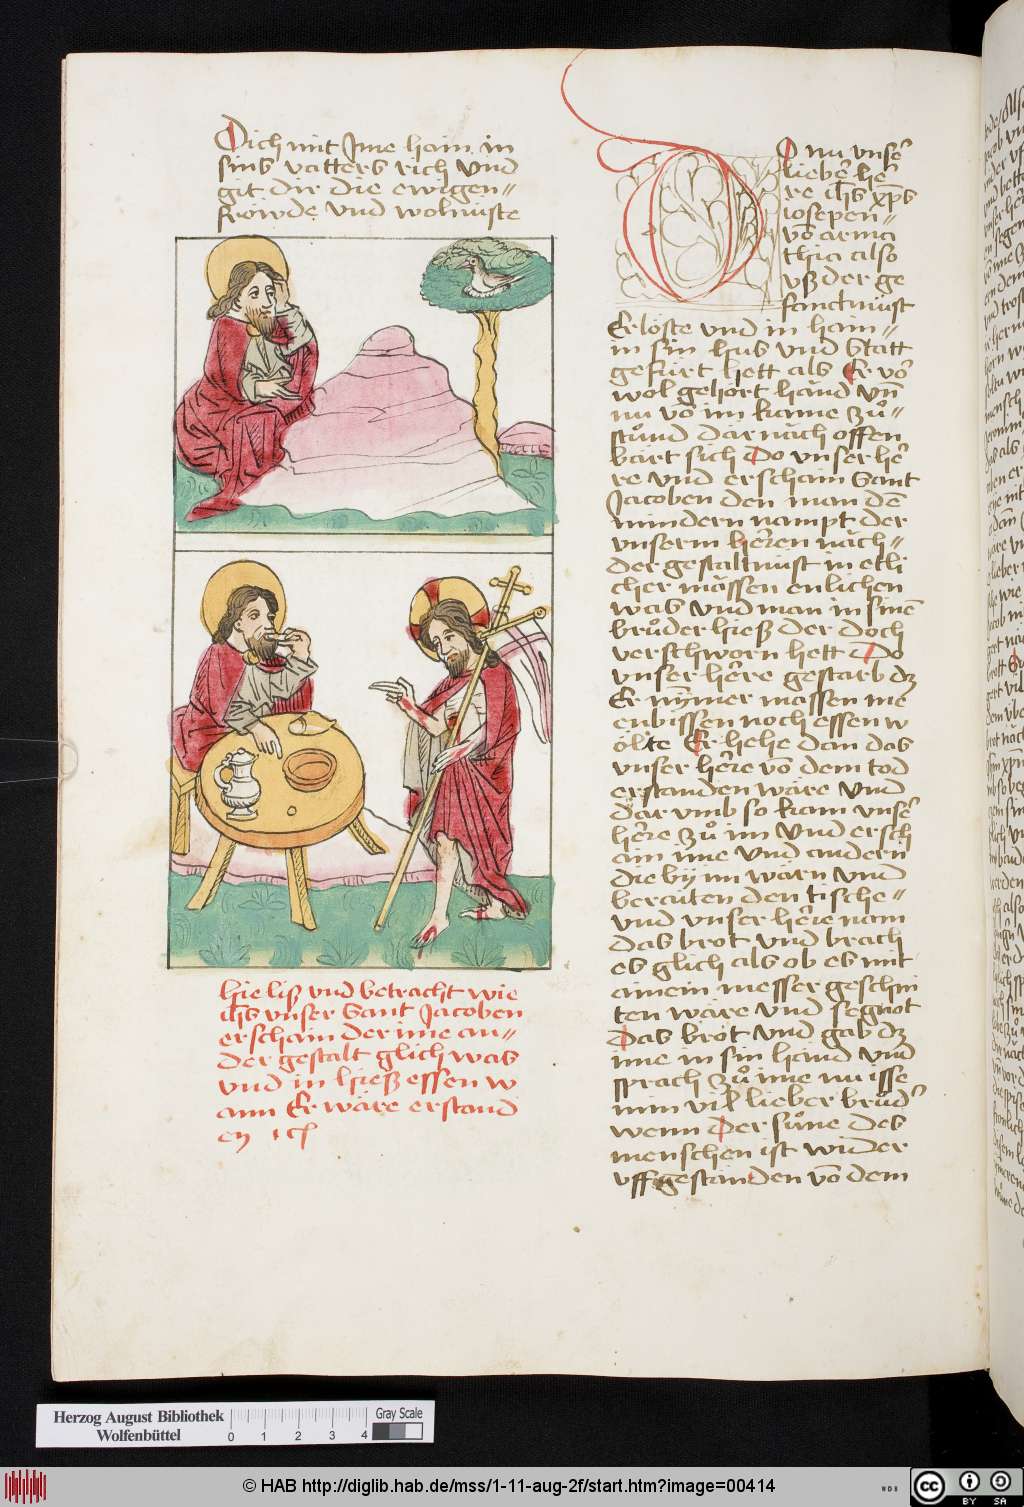 Dich mit Jme haim in
sins vatters rich vnd
git dir die ewigen=
fröwde vnd wolnuste
hie liß vnd betracht wie
ih̄s vnser Sant Jacoben
erschain der ime an=
der gestalt glich was
vnd in hieß essen w
ann Er wäre erstand
en ꝛc
DO nu vnser̄
lieber her̄
re ih̄s xp̄s
iosepen=
vō arma
thia also
vß der ge
fancknüst
Erlöste vnd in haim=
in sin hus vnd Statt
gefürt hett als Er vor̄
wol gehort hand vn̄
nu vō im kame zů=
stůnd dar nach offen
bart sich Do vnser her̄
re vnd erschain Sant
Jacoben den man dē
mindern nampt der
vnserm herren näch=
der gestaltnust in etli
cher mässen enlichen
was vnd man in sinē
brůder hieß der doch
verschworn hett Do
vnser herre gestarb dz
Er nym̄er massen me
enbissen noch essen w
ölte Er sehe dan das
vnser herre vō dem tod
erstanden wäre Vnd
dar vmb so kam vnser̄
herre zů im Vnd ersch
ain ime Vnd andern
die bÿ im wärn Vnd
beraiten den tische=
vnd vnser herre nam
das brot vnd brach
es glich als ob es mit
ainem messer geschni
ten wäre vnd segnot
Das brot vnd gab dz
ime in sin händ vnd
sprach zů ime nu isse
min vil lieber brůder̄
wenn Der sůne des
menschen ist wider
vff gestanden vō dem
Herzog August Bibliothek
Wolfenbüttel
0 1 2 3 4
Gray Scale
© HAB http://diglib.hab.de/mss/1-11-aug-2f/start.htm?image=00414
WDB
cc BY SA